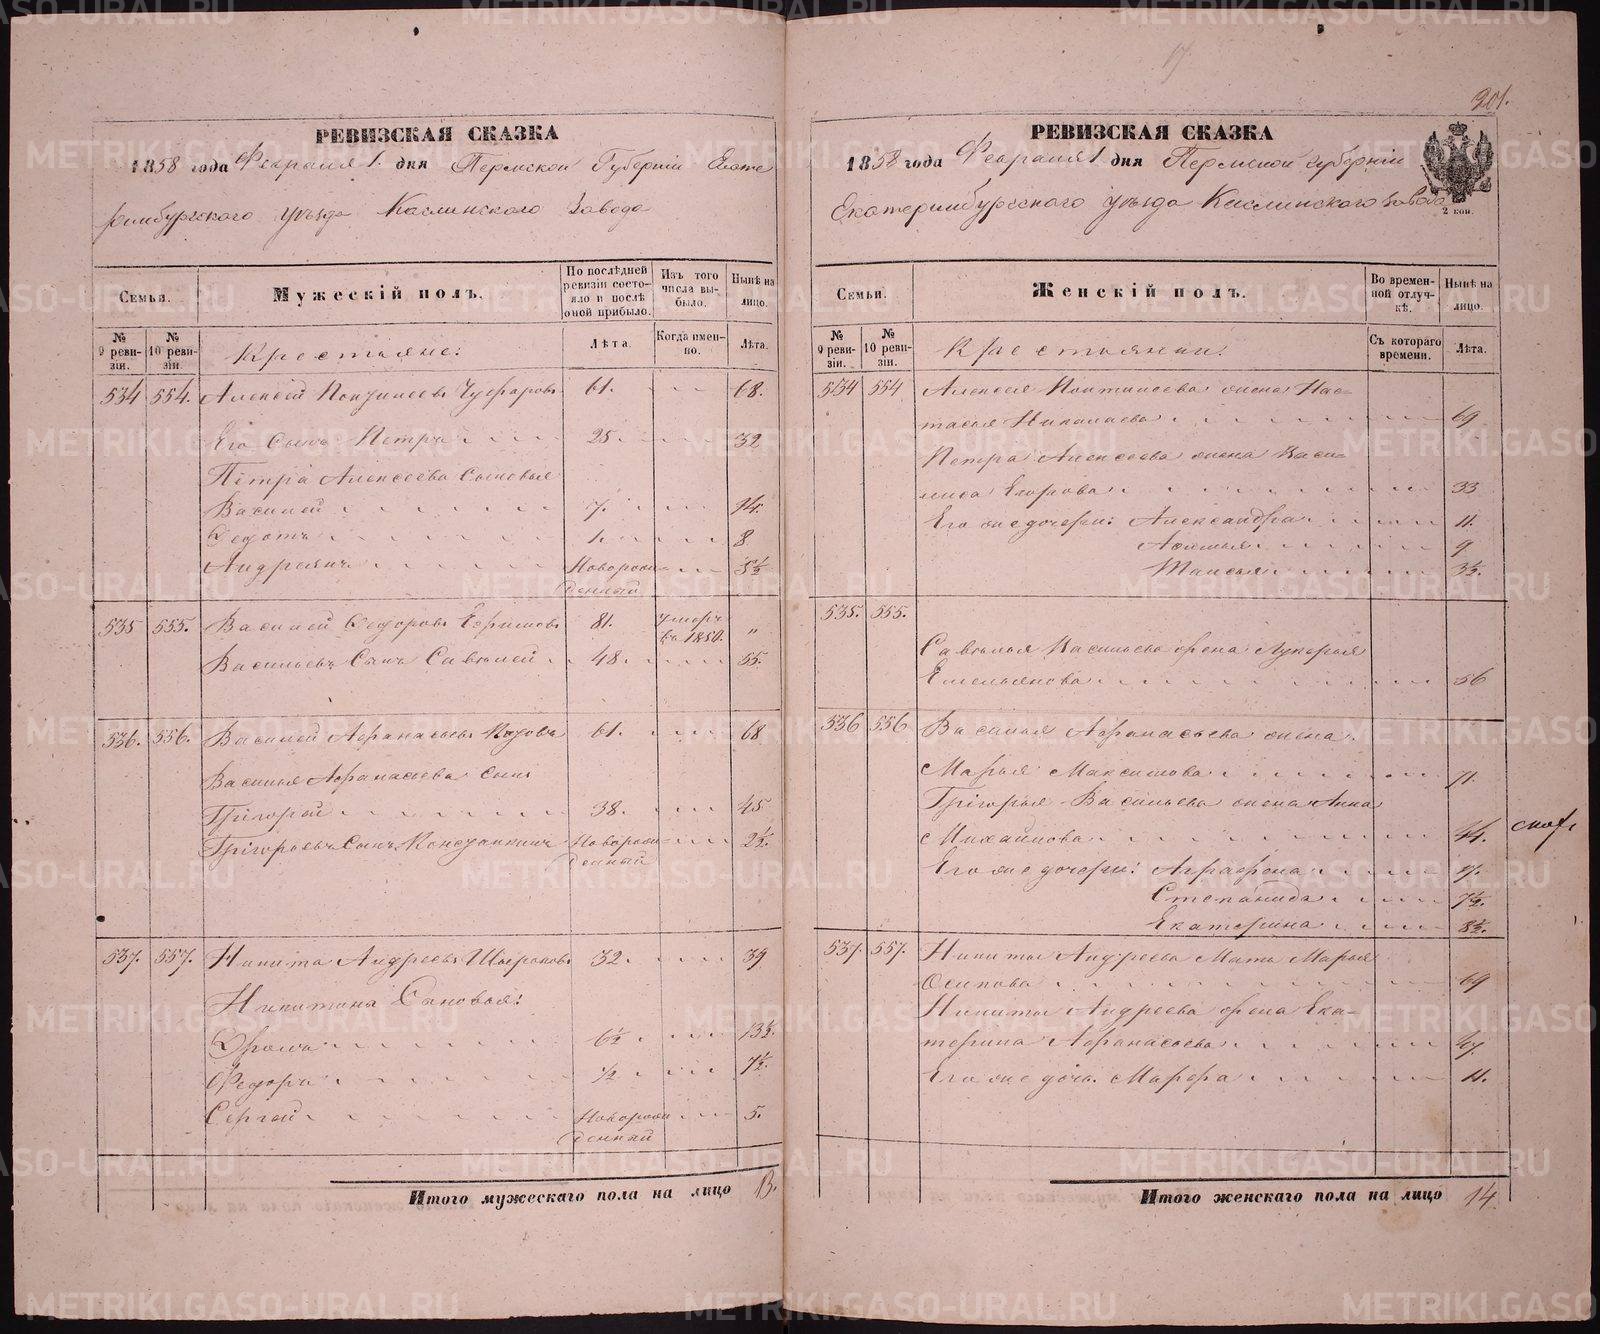 РЕВИЗСКАЯ СКАЗКА
1858 года Февраля 1. дня Пермской Губернiи Екате
ринбургскаго уѣзда Каслинскаго Завода
Семьи.
Мужескiй полъ.
По послѣдней ревизiи состояло и послѣ оной прибыло.
Изъ того числа выбыло.
Нынѣ на лицо.
№ 9 ревизiи.
№ 10 ревизiи.
Крестьяне:
Лѣта.
Когда именно.
Лѣта.
534 554. Алексей 61. 68.
Его Сынъ Петръ 25. 32
Петра Алексеева Сыновья
Василей 7. 14.
Федотъ 1. 8
Андреянъ Новорож- 5½
денный
535 555. Василей Федоровъ Ефимовъ 81. умеръ "
въ 1850.
Васильевъ Сынъ Савелей 48. 55.
536. 556. Василей Афанасьевъ 61. 68
Василья Афанасьева сынъ
Григорей 38. 45
Григорьевъ Сынъ Константинъ Новорож- 2½
денный
537. 557. Никита Андреевъ 32. 39
Никитина Сыновья:
6½ 13½.
Федоръ ½ 7½.
Сергей Новорож 5.
денный
Итого мужескаго пола на лицо 13.
201.
РЕВИЗСКАЯ СКАЗКА
1858 года Февраля 1 дня Пермской губернiи
Екатеринбургскаго уѣзда Каслинскаго Завода
2 коп.
Семьи.
Женскiй полъ.
Во временной отлучкѣ.
Нынѣ на лицо.
№ 9 ревизiи.
№ 10 ревизiи.
Крестьянки.
Съ котораго времени.
Лѣта.
534 554 Алексея жена Нас-
тасья Николаева 69
Петра Алексеева жена Васи-
лиса Егорова 33
Его же дочери: Александра 11.
9
Таисья 3½.
535. 555.
Савелья Васильева жена Лукерья
Емельянова 56
536 556 Василья Афанасьева жена
Марья Максимова 71.
Григорья Васильева жена Анна
Михайлова 44.
Его же дочери: Аграфена 17.
Степанида 7½.
Екатерина 8½.
537. 557. Никиты Андреева Мать Марья
Осипова 69
Никиты Андреева жена Ека-
терина Афанасьева
Его же дочь Марфа 11.
Итого женскаго пола на лицо 14
METRIKI.GASO-URAL.RU